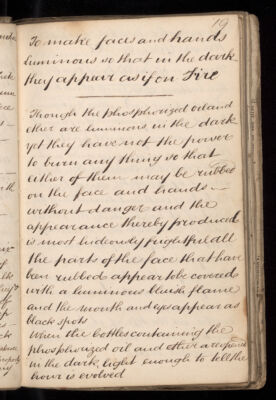 19
To make faces and hands
luminous so that in the dark
they appear as if on Fire
Though the phosphorized oil and
ether are luminous in the dark
yet they have not the power
to burn any thing so that
either of them may be rubbed
on the face and hands
without danger and the
appearance thereby produced
is most hideously frightful all
the parts of the face that have
been rubbed appear to be covered
with a luminous bluish flame
and the mouth and eyes appear as
black spots
When the bottles containing the
phosphorized oil and ether are opened
in the dark, light enough to tell the
hour is evolved